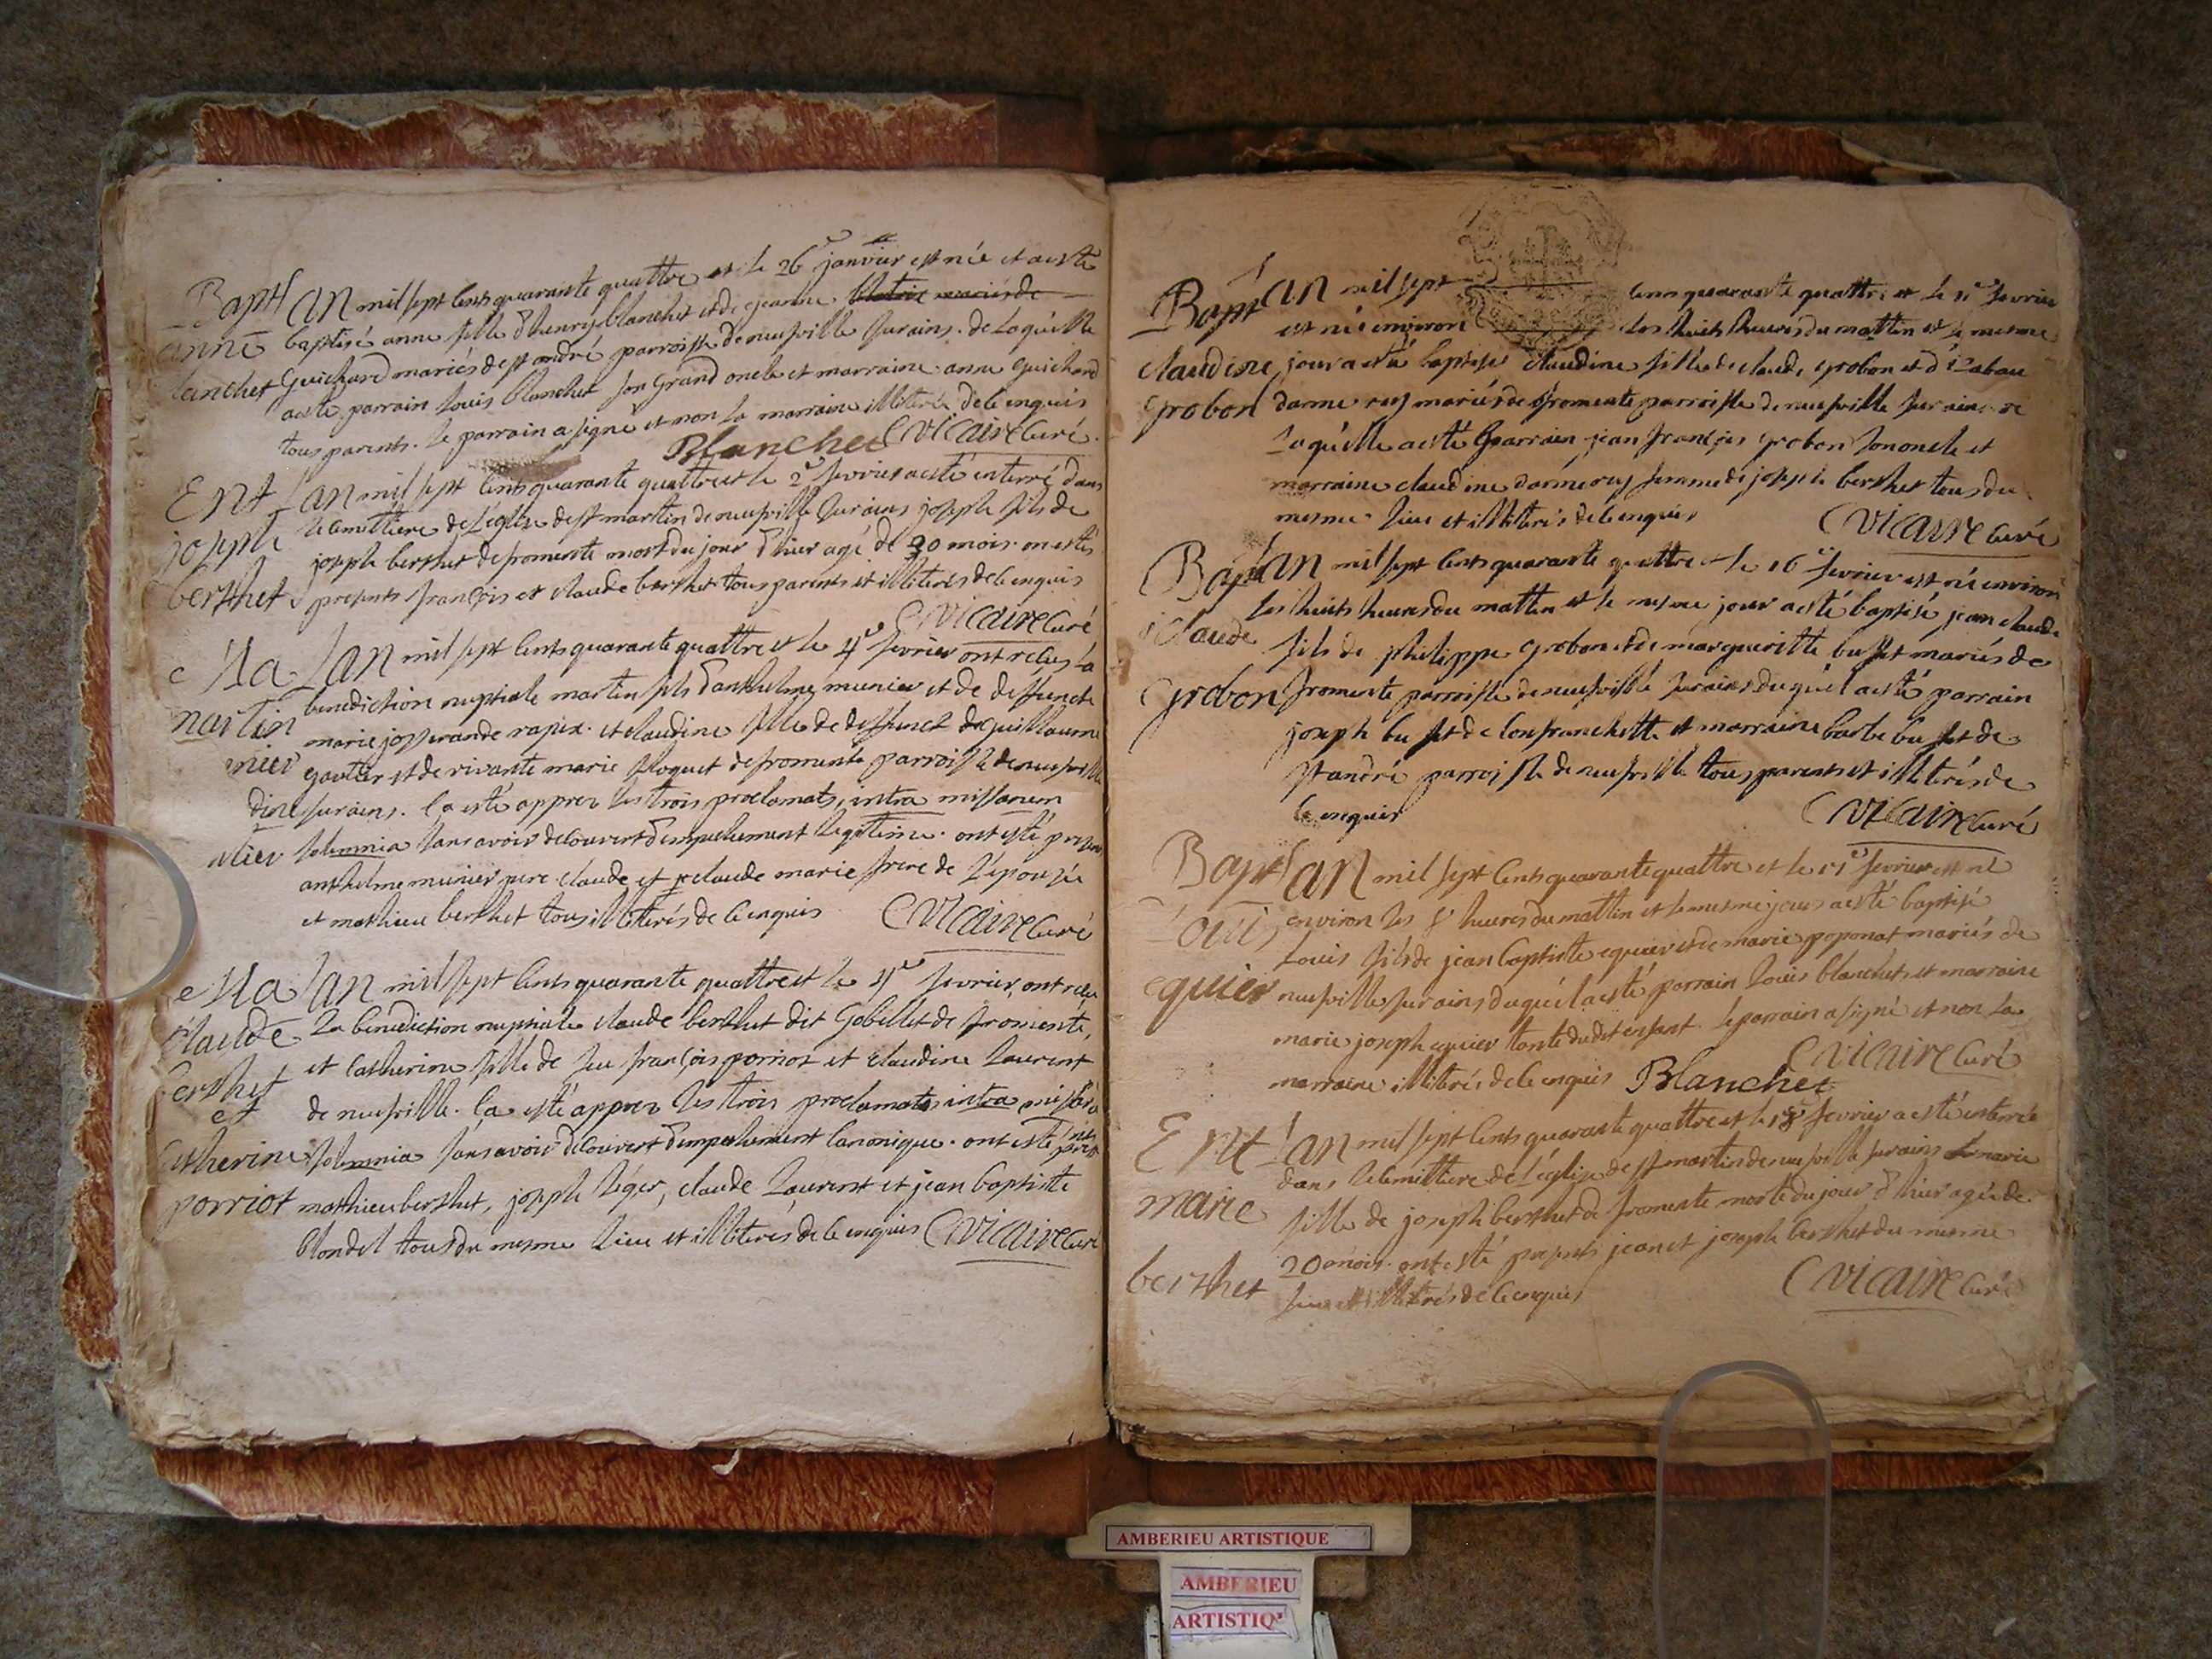 Bapt L'an mil sept cents quarante quattre et le 26e janvier est née et a esté
anne baptisé anne fille d'henry blanchet et de jeanne mariés de
lanchet Guichard mariés de st andré parroisse de neufville sur ains. de laquelle
a esté parrain louis blanchet son grand oncle et marraine anne guichard
tous parents. le parrain a signé et non la marraine illiterée de ce enquis
Blanchet C vicaire curé.
Ent L'an mil sept cents quarante quattre et le 2e fevrier a esté enterré dans
joseph le cimettiere de l'eglise de st martin de neufville sur ains joseph fils de
joseph berthet de fromente mort du jour d'hier agé de 30 mois. on estés
berthet presents françois et claude berthet tous parents et illiterés de ce enquis
C vicaire curé
Ma L'an mil sept cents quarante quattre et le 4e fevrier ont reçus la
martin benediction nuptiale martin fils d'anthelme munier et de deffuncte
marie josserande rapix. et claudine fille de deffunct de guillaume
nier gautier et de vivante marie floquet de fromente parroisse de neufville
dine sur ains. ca esté apprez les trois proclamats, intra missarum
utier solemnia sans avoir decouvert d'empechement legitime. ont esté presens
anthelme munier pere claude et claude marie frere de l'épouzée
et mathieu berthet tous illiterés de ce enquis C vicaire curé
Ma L'an mil sept cents quarante quattre et le 4e fevrier, ont reçu
claude la benediction nuptiale claude berthet dit Gobillet de fromente,
berthet et catherine fille de feu françois porriot et claudine laurent
et de neufville. ca esté apprez les trois proclamats intra missarum
catherine solemnia sans avoir decouvert d'empechement canonique. ont esté presents
porriot mathieu berthet, joseph léger, claude laurent et jean baptiste
blondel tous du mesme lieu et illiterés de ce enquis C vicaire curé
Bapt L'an mil sept cents quarante quattre et le 11e fevrier
est né environ les huits heures du mattin et le mesme
claudine jour a esté baptisée claudine fille de claude grobon et d'izabau
grobon darmeroy mariés de fromente parroisse de neufville sur ains. de
laquelle a esté parrain jean françois grobon son oncle et
marraine claudine darmeroy femme de joseph berthet tous du
mesme lieu et illiterés de ce enquis C vicaire curé
Bapt L'an mil sept cents quarante quattre et le 16e fevrier est né environ
les huits heures du mattin et le mesme jour a esté baptisé jean claude
claude fils de philippe grobon et de margueritte buffet mariés de
grobon fromente parroisse de neufville sur ains duquel a esté parrain
joseph buffet de confranchette et marraine barbe buffet de
st andré parroisse de neufville tous parents et illiterés de
ce enquis C vicaire curé
Bapt L'an mil sept cents quarante quattre et le 17e fevrier est né
Louis environ les 8 heures du mattin et le mesme jour a esté baptisé
Louis fils de jean baptiste equier et de marie poponat mariés de
equier neufville sur ains duquel a esté parrain louis blanchet et marraine
marie joseph equier tante du dit enfant. le parrain a signé et non la
marraine illiterés de ce enquis Blanchet C vicaire curé
Ent L'an mil sept cents quarante quattre et le 18e fevrier a esté enterrée
dans le cemittiere de l'église de st martin de neufville sur ains marie
marie fille de joseph berthet de fromente morte du jour d'hier agée de
20 mois. ont esté presents jean et joseph berthet du mesme
berthet lieu et illiterés de ce enquis C vicaire curé
AMBERIEU ARTISTIQUE
AMBERIEU
ARTISTIQ